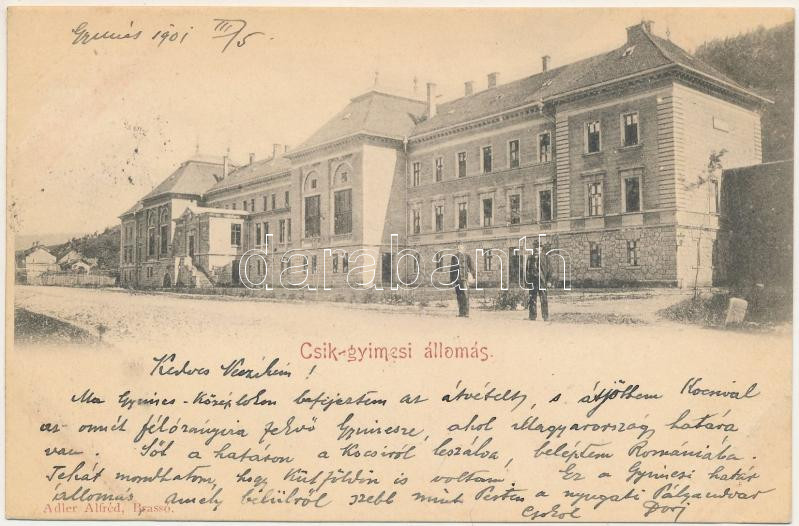 Gyimes 1901 III/5
darabanth
Csik-gyimesi állomás.
Kedves !
Ma Gyimes-Középlokon befejeztem az átvételt, s átjöttem Kocsival
az onnét félórányira fekvő Gyimesre, ahol Magyarország határa
van. Sőt a határon a Kocsiról leszálva, beléptem Romániába.
Tehát mondhatom, hogy Külföldön is voltam. Ez a Gyimesi határ
állomás, amely belülről szebb mint Pesten a nyugati Pályaudvar
Adler Alfréd, Brassó.
Csókol